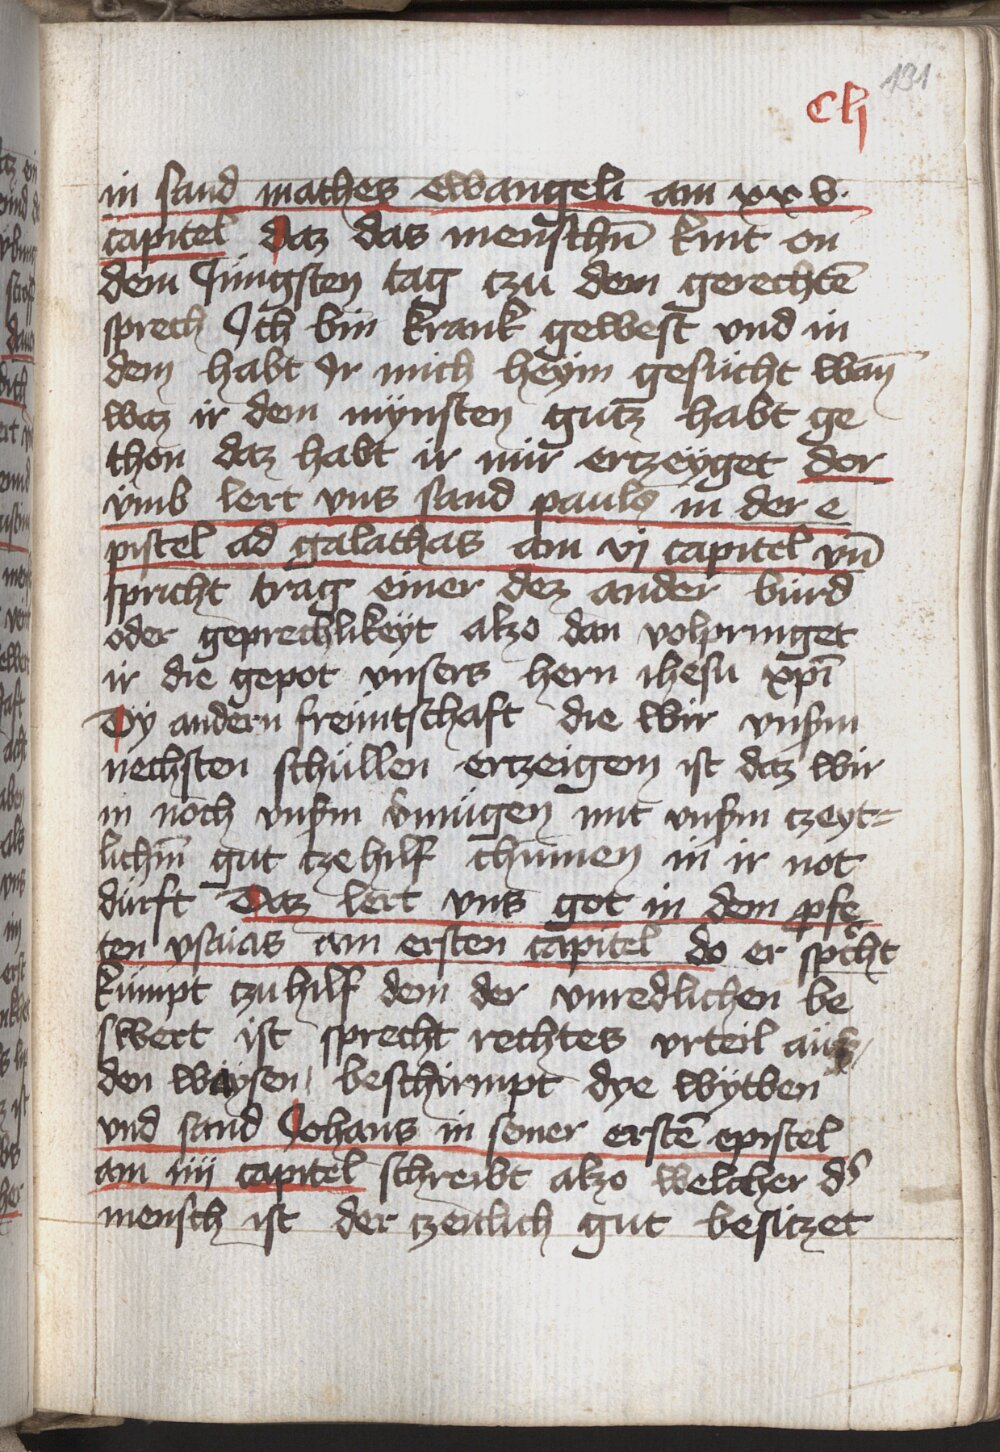 131
Clj
in sand matheus ewangeli am xxv.
capitel Daz das menschn̄ kint on
dem Jungsten tag czu dem gerechtē
sprech Ich bin krank gewest vnd in
dem habt Ir mich heym gesucht wan̄
waz ir dem mynsten gutz habt ge
thon daz habt ir mir ertzeyget dor
vmb lert vns sand paulꝰ in der e
pistel ad galathas am vj capitel vn̄
spricht trag einer dez ander burd
oder geprechlikeyt alzo dan volpringet
ir die gepot vnsers hern ihesu xp̄i
Dy andern freuntschaft die wir vnsm
nechsten schullen ertzeigen ist daz wir
in noch vnsm vmugen mit vnsm czeyt=
lichm̄ gut cze hilf chumen in ir not
durft Daz lert vns got in dem ꝓfe
ten ysaias am ersten capitel do er spͥcht
kumpt czu hilf dem der vnredlichen be
swert ist sprecht rechtes vrteil aus
den waysen beschirmpt dye wytben
vnd sand Johans in sener erstē epistel
am iiij capitel schreibt alzo welcher ds
mensch ist der czeitlich gut besitzet